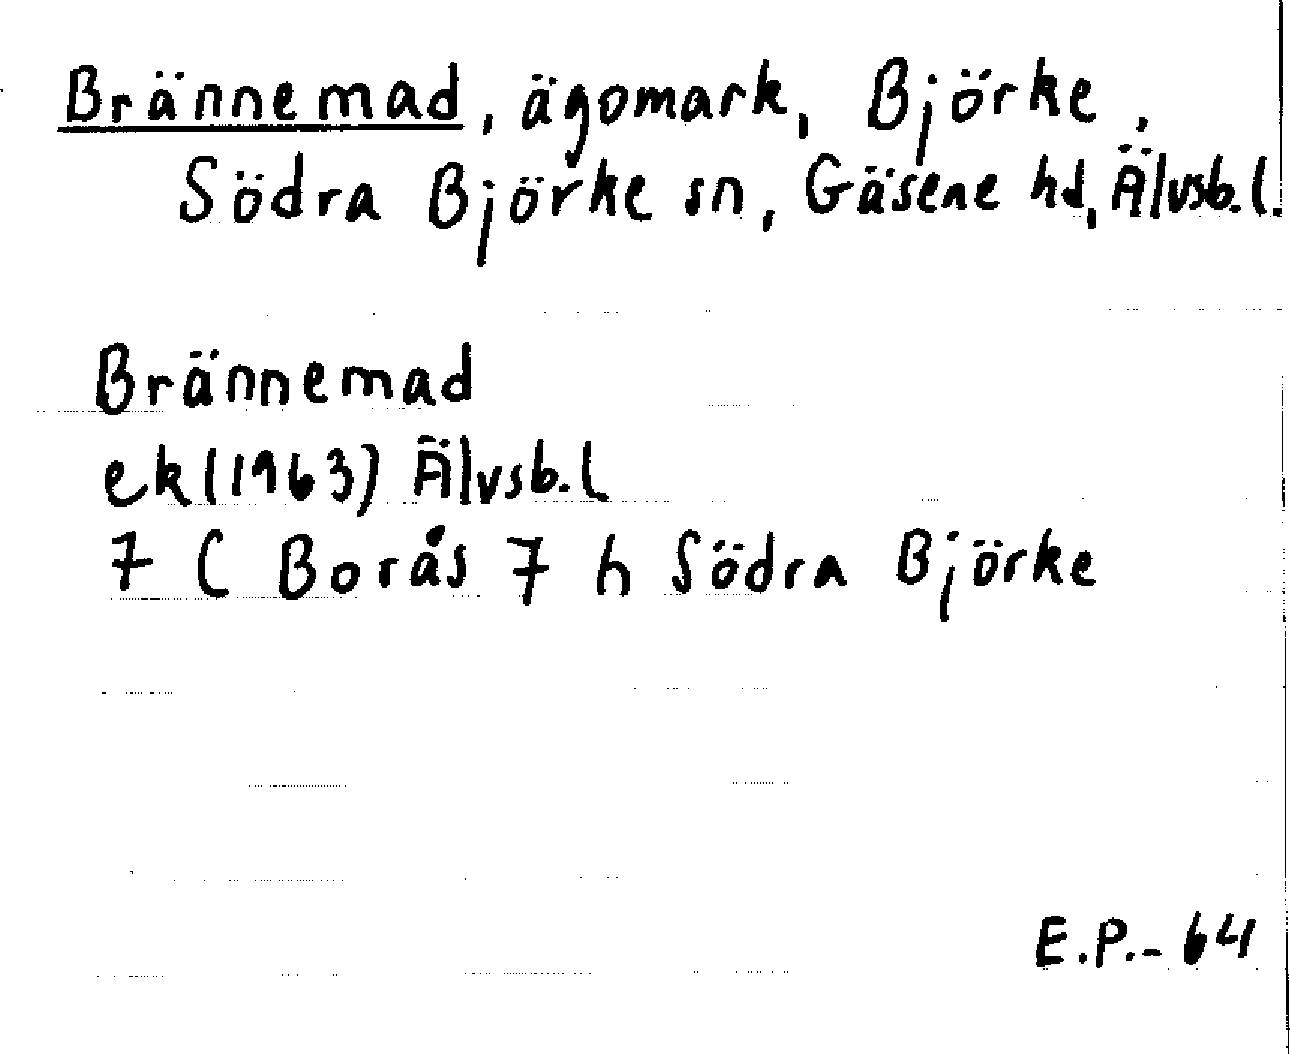 Brännemad, ägomark, Björke,
Södra Björke sn, Gäsene hd, Älvsb.l.
Brännemad
ek (1963) Älvsb.l
7 C Borås 7 h Södra Björke
E.P.-64